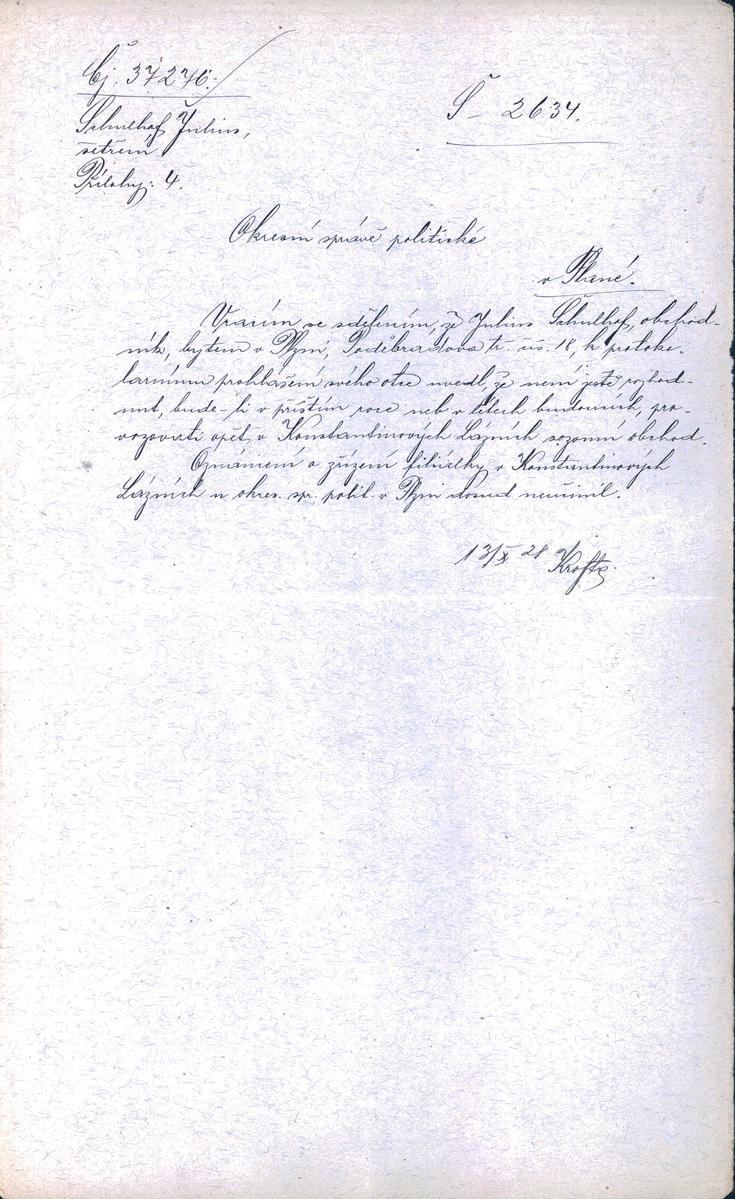 Čj. 37276.
Š – 2634.
Schulhof Julius,
šetření
Přílohy: 4.
Okresní správě politické
v Plané.
Vracím se sdělením, že Julius Schulhof, obchod-
ník, bytem v Plzni, Poděbradova tř. čís. 18, k protoko-
lárnímu prohlášení svého otce uvedl, že není ještě rozhod-
nut, bude-li v příštím roce neb v létech budoucích, pro-
vozovati opět v Konstantinových Lázních sezonní obchod.
Oznámení o zřízení filiálky v Konstantinových
Lázních u okres. spr. polit. v Plzni dosud neučinil.
13/X 28 Krofta